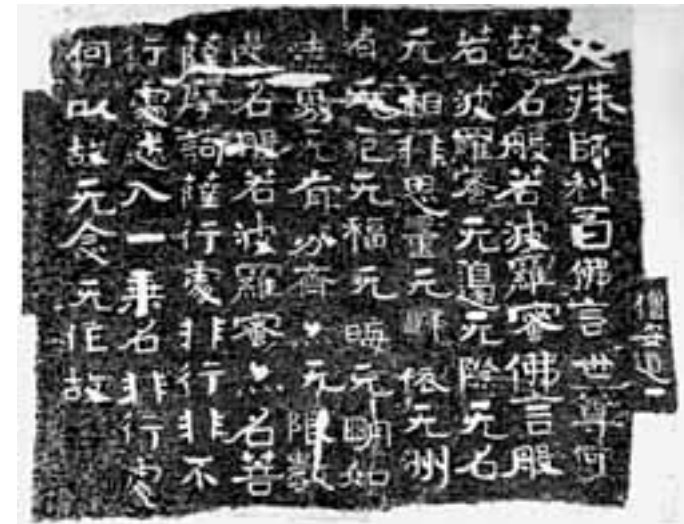 僧安道一
文殊師利白佛言世尊何
故名般若波羅蜜佛言般
若波羅蜜无邊无際无名
无相非思量无歸依无洲
无犯无福无晦无明如
法界无有分齊亦无限數
是名般若波羅蜜亦名菩
薩摩訶薩行處非行非不
行處悉入一乘名非行處
何以故无念无作故